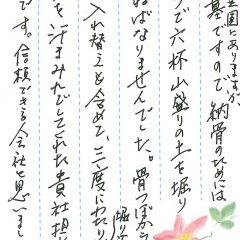 全国にありますが
墓ですので、納骨のためには
りで六杯山盛りの土を掘り
ねばなりませんでした。骨つぼから
入れ替えも含めて、三度にわたり
掘り
を汗まみれでしてくれた貴社担
です。信頼できる会社と思いまし